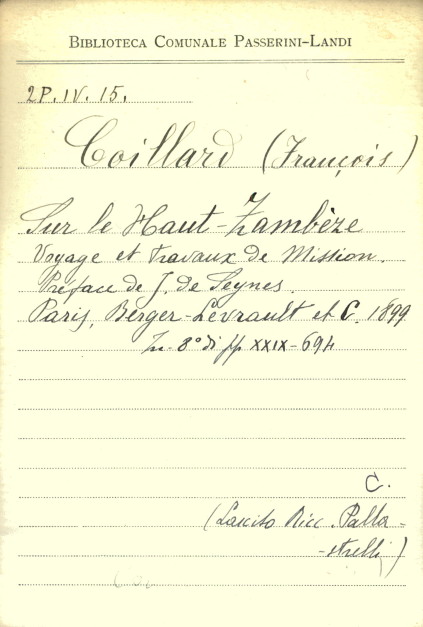 BIBLIOTECA COMUNALE PASSERINI-LANDI
2P.IV.15.
Coillard (François)
Sur le Haut-Zambèze
Voyage et travaux de Mission.
Préface de J. de Seynes.
Paris, Berger-Levrault et C. 1899
In-8° di pp XXIX-694
C.
(Lascito Ricc. Palla-
-strelli)